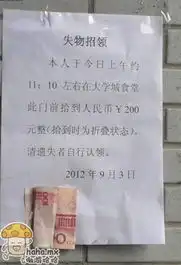 失物招领
本人于今日上午约
11：10 左右在大学城食堂
此门前拾到人民币￥200
元整(拾到时为折叠状态)。
请遗失者自行认领。
2012 年 9 月 3 日
haha.mx